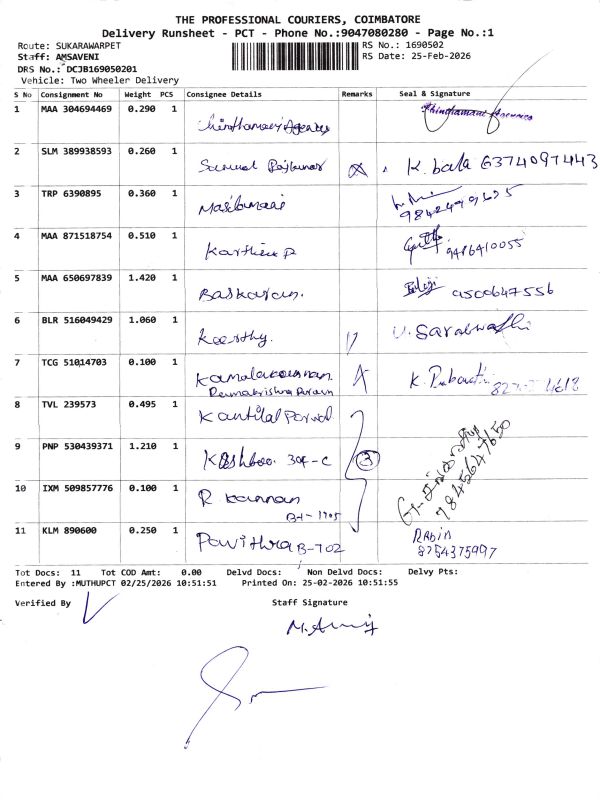 THE PROFESSIONAL COURIERS, COIMBATORE
Delivery Runsheet - PCT - Phone No.:9047080280 - Page No.:1
Route: SUKARAWARPET RS No.: 1690502
Staff: AMSAVENI RS Date: 25-Feb-2026
DRS No.: DCJB169050201
Vehicle: Two Wheeler Delivery
S No Consignment No Weight PCS Consignee Details Remarks Seal & Signature
1 MAA 304694469 0.290 1 Chinthamani Agencies Chinthamani Agencies
2 SLM 389938593 0.260 1 Samuel Rajkumar K. bala 6374097443
3 TRP 6390895 0.360 1 Masilamani
4 MAA 871518754 0.510 1 Karthick P 9486410055
5 MAA 650697839 1.420 1 Baskaran. 9500647556
6 BLR 516049429 1.060 1 Keerthy. U. Saraswathi
7 TCG 51014703 0.100 1 Kamalakannan K.
Ramakrishna Puram
8 TVL 239573 0.495 1 Kantilal
9 PNP 530439371 1.210 1 Khshboo 304-C 3
7845647650
10 IXM 509857776 0.100 1 R Kannan
B-1-1705
11 KLM 890600 0.250 1 Pavithra B-702 Rabin
8754375997
Tot Docs: 11 Tot COD Amt: 0.00 Delvd Docs: Non Delvd Docs: Delvy Pts:
Entered By :MUTHUPCT 02/25/2026 10:51:51 Printed On: 25-02-2026 10:51:55
Verified By Staff Signature